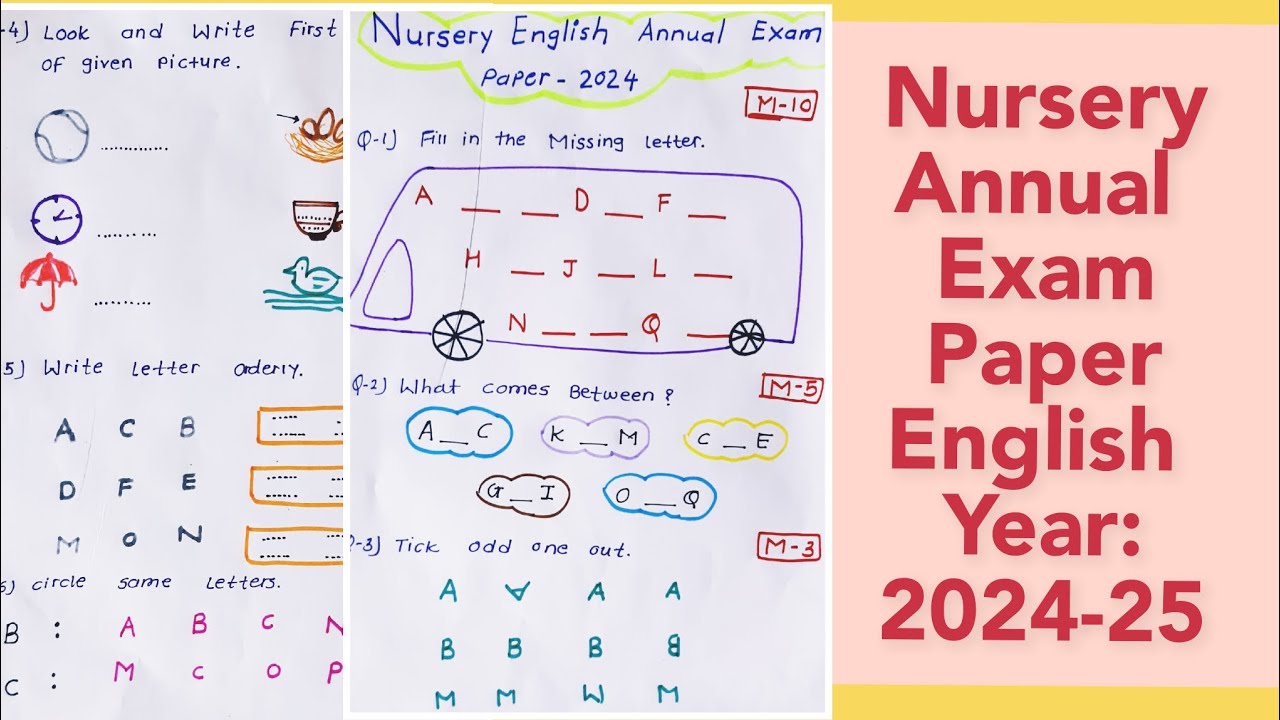 -4) Look and Write First
of given Picture.
.............
.........
.........
5) Write letter orderly.
A C B
D F E
M O N
6) circle same letters.
B : A B C N
C : M C O P
Nursery English Annual Exam
Paper - 2024
M-10
Q-1) Fill in the Missing letter.
A __ __ D __ F __
H __ J __ L __
N __ __ Q __
Q-2) What comes Between?
M-5
A __ C K __ M C __ E
G __ I O __ Q
Q-3) Tick odd one out.
M-3
A ∀ A A
B B B B
M M W M
Nursery
Annual
Exam
Paper
English
Year:
2024-25